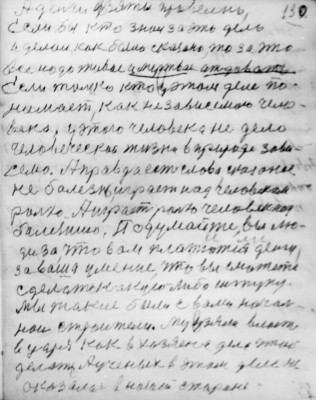 А деньги взяты
130.
Если бы кто знал за это дело
и деньги как было сказано, то за это
все надо живое и мертвое отдавать
Если только кто в этом деле по-
нимает, как независемого чело-
века, у этого человека не дело
человеческая жизнь в природе зави-
семо. А правда есть слова сказаное
не болезнь играет над человеком
ролю. А играет ролю человек над
болезнию. Подумайте, вы лю-
ди за что вам платют деньги,
за ваша умение, что вы сможете
сделать какую либо штуку.
Мы такие были с вами начал-
ные строители. Мы взяли власть
в царя как в хозяина дело это
делать. А ученых в этом деле не
оказалось в нашей стороне.